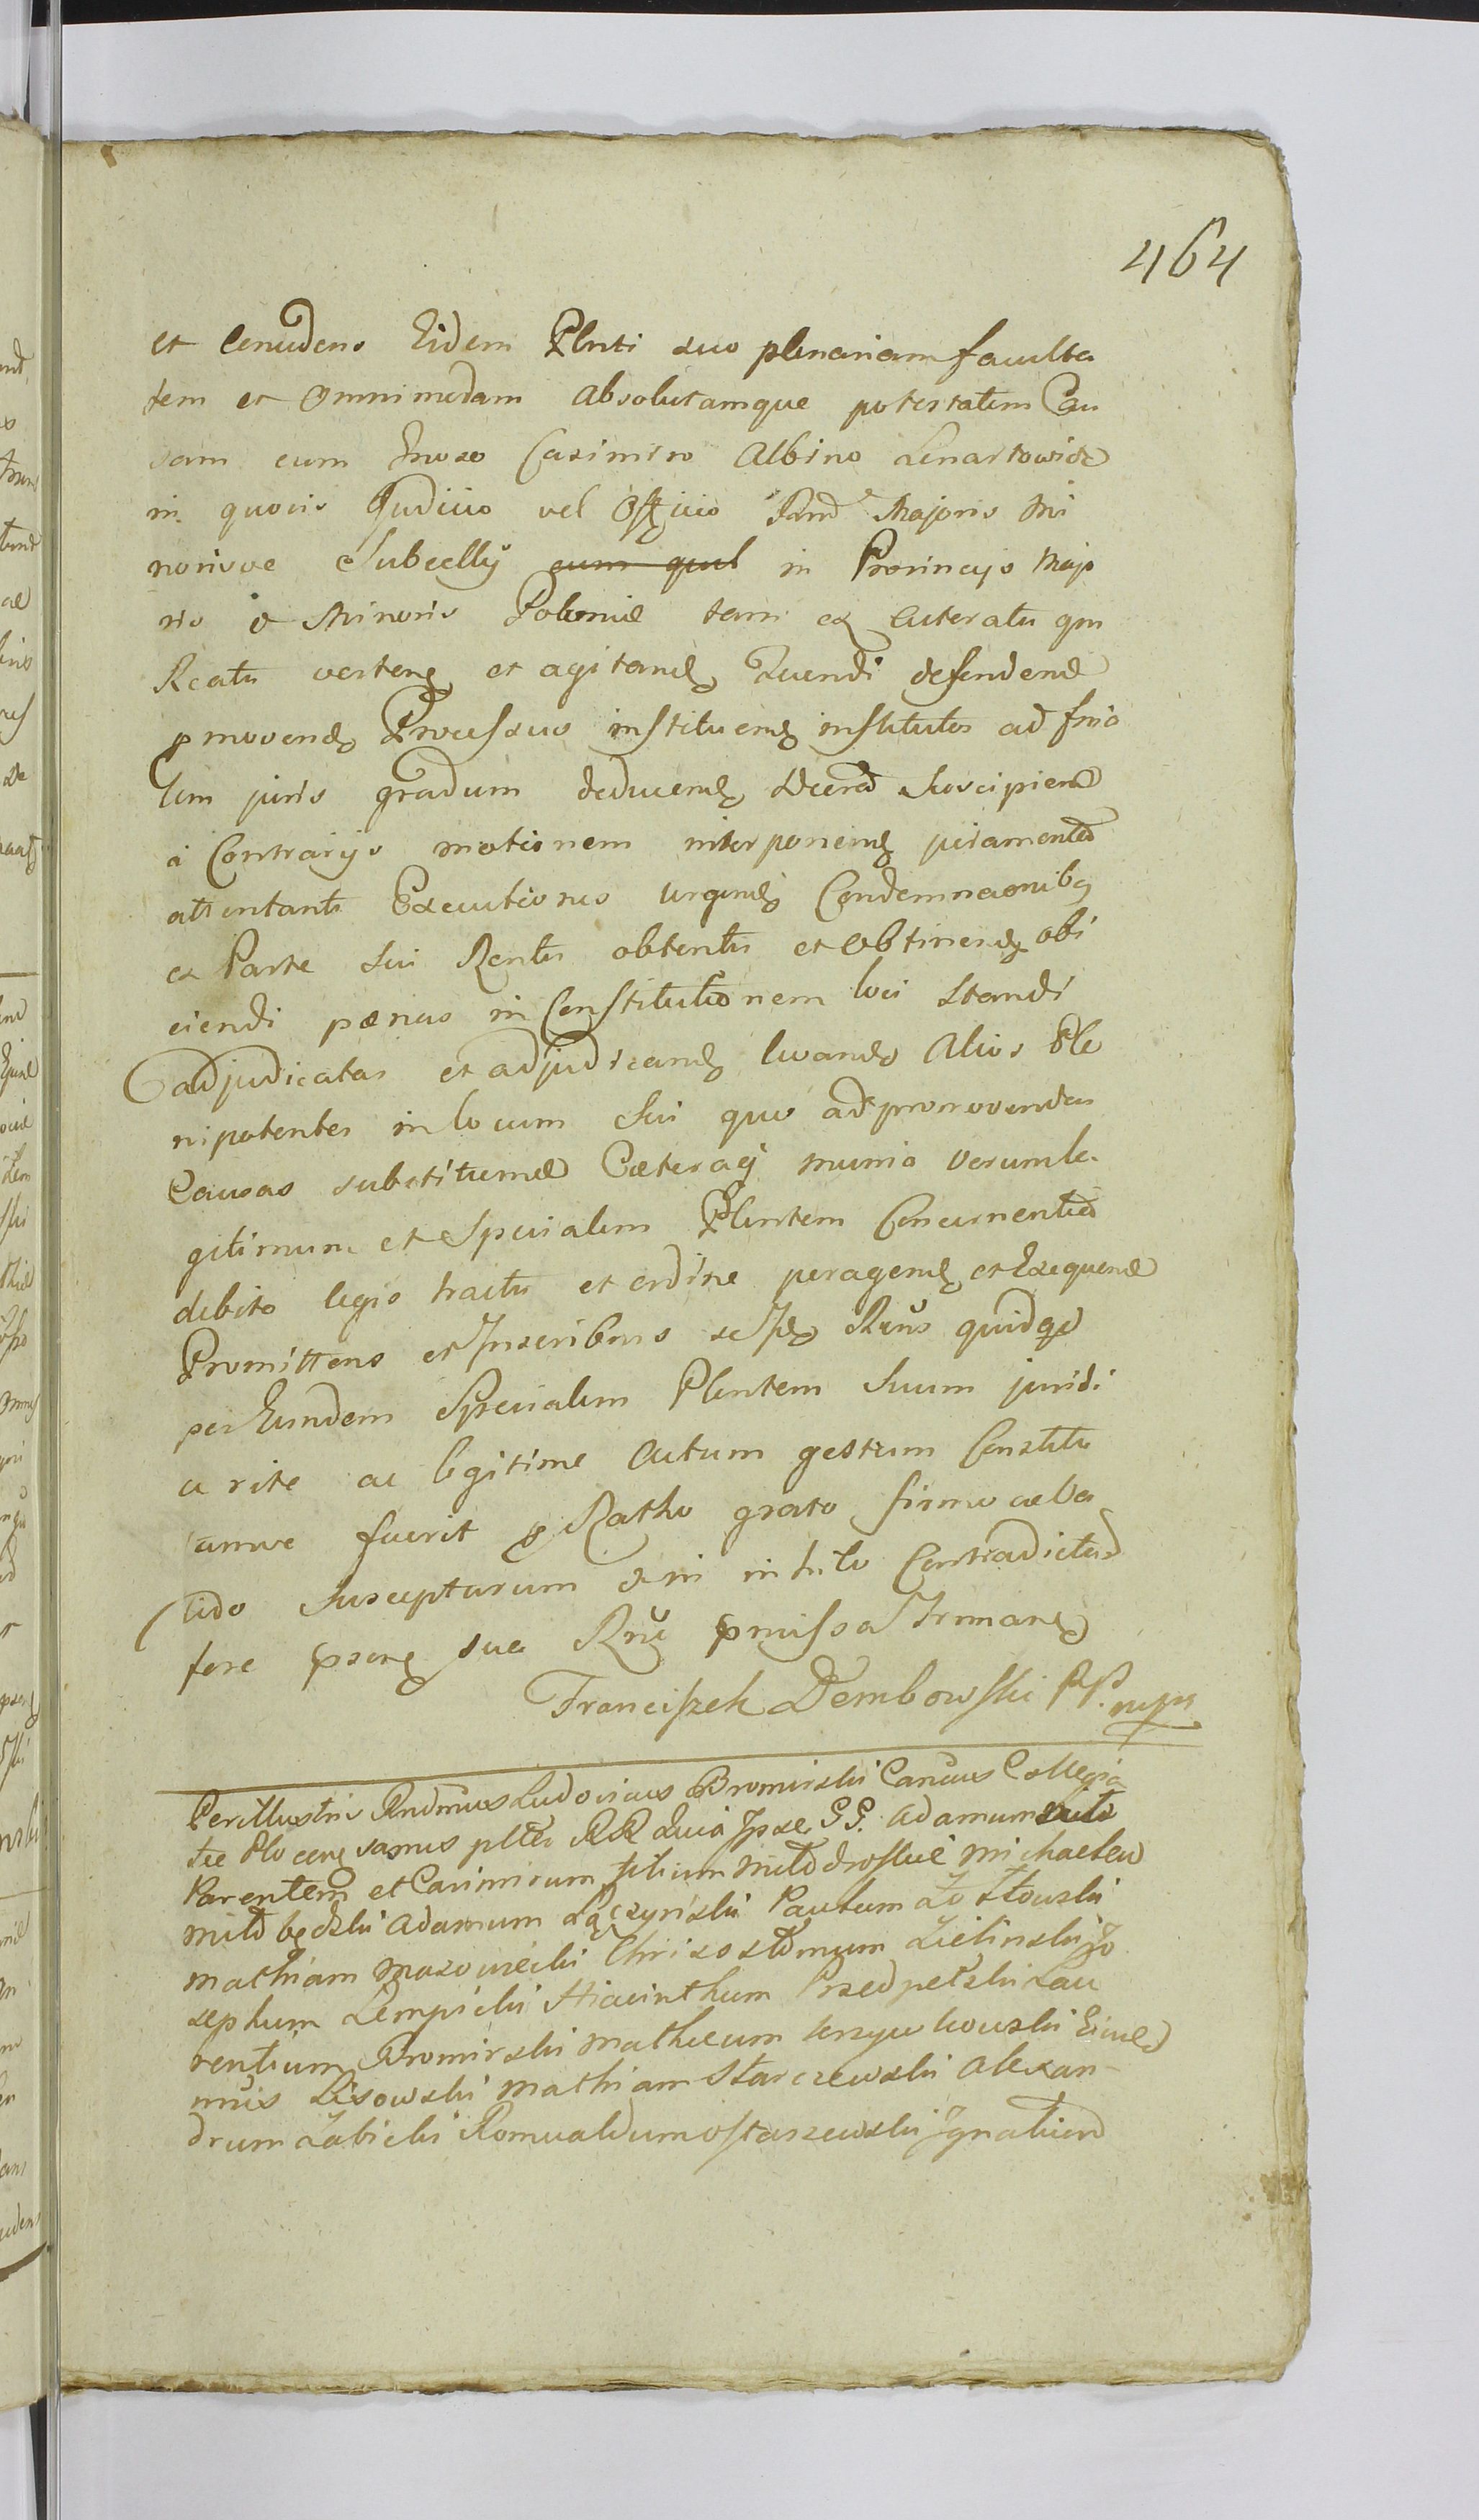 464
et Concedens Eidem Plnti suo plenariam faculta
tem et Omnimodam Absolutamque potestatem Cau
sam cum Gnoso Casimiro Albino Lenartowicz
in quovis Judicio vel Officio Rand Majoris Mi
norisve Subselly cum qul in Provincijs Majo
ris & Minoris Poloniæ tam ex Acteratu qm
Reatu verteng et agitandg Tuendi defendend
pmovendg Processus instituendg institutos ad fina
lem juris gradum deducendg Decret Suscipiend
à Contrarijs motionem interponendg juramentis
attentant Executiones urgendg Condemnaonibg
ex Parte sui Rentis obtentis et Obtinendg obi
ciendi pænas in Constitutionem loci Standi
adjudicatas et adjudicandg luandg Alios Ple
nipotentes in locum Sui quo ad promovendas
Causas substituend Cæteraq munia verum le
gitimum et Specialem Plentem Concernentia
debito legis tractu et ordine peragendg et Exequend
Promittens et Inscribens se Idg Rŭns quidqd
per Eundem Specialem Plentem Suum juridi
ce rite ac legitime Actum gestum Constitu
tumve fuerit p Ratho grato firmo ac va
lido Suscepturum & in in hilo Contradictur
fore pseng sua Rnŭ pmissa Irmang
Franciszek Dembowski PP. mpp
Perillustris Rndmus Ludovicus Bromirski Cancus Collegia
tæ Plocens sanus pltr RR Quia Ipse GG. Adamum
Parentem et Casimirum filium Michaelem
Adamum Łączyński Paulum Zołtowski
Mathiam Mazowiecki Chrisostomum Zielinski Jo
sephum Lempicki Hiacinthum Przedpełski Lau
rentium Bromirski Mathæum Krzywkowski
Lisowski Mathiam Starczewski Alexan-
drum Zabicki Romualdum Ostaszewski Ignatium